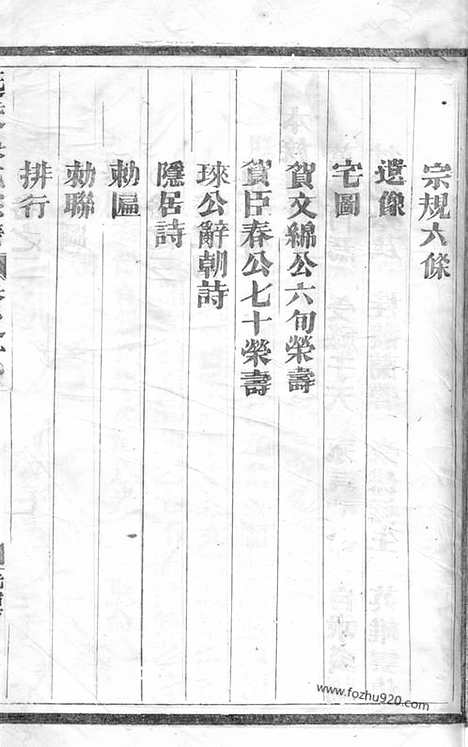 宗規六條
遺像
宅圖
賀文綿公六旬榮壽
賀臣春公七十榮壽
琜公辭朝詩
隱居詩
勅匾
勅聯
排行
www.fozhu920.com